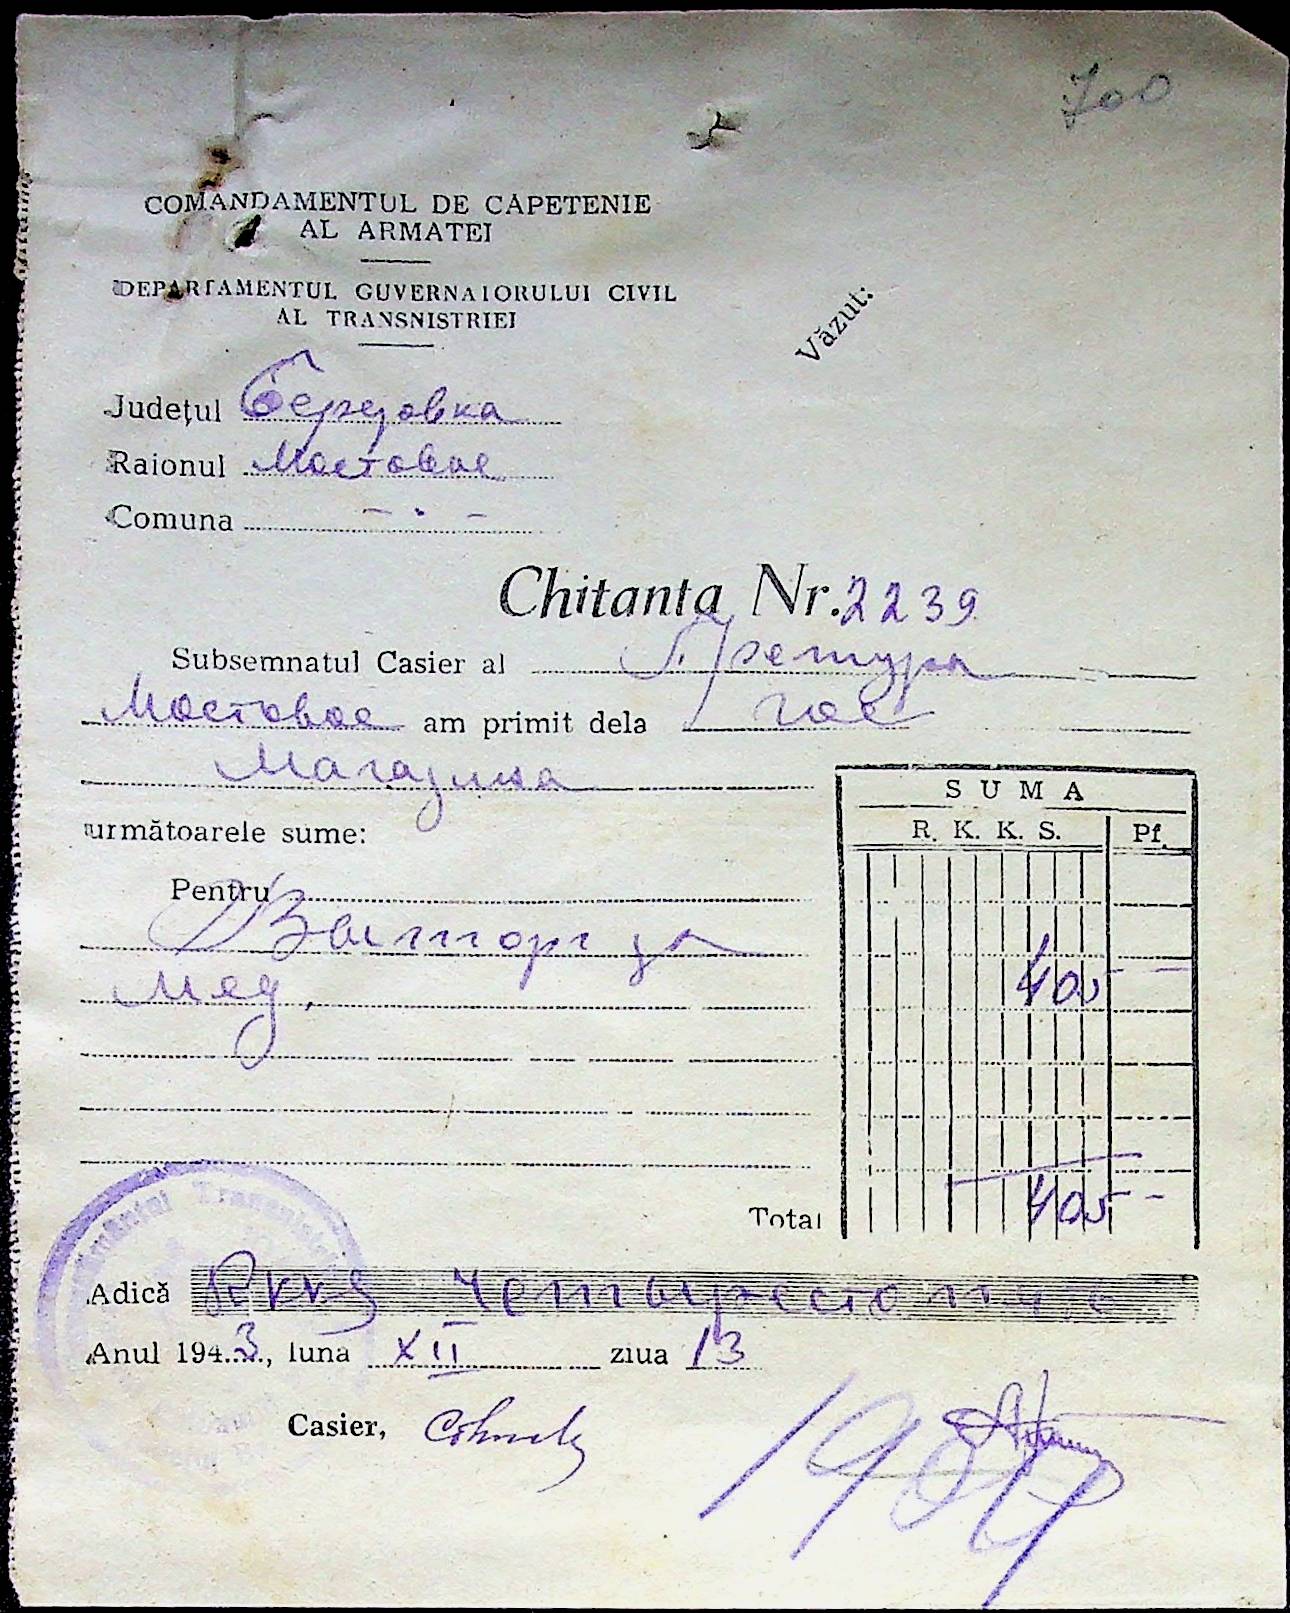 700
COMANDAMENTUL DE CAPETENIE
AL ARMATEI
DEPARTAMENTUL GUVERNATORULUI CIVIL
AL TRANSNISTRIEI
Văzut:
Județul Березовка
Raionul Мостовое
Comuna - . -
Chitanta Nr. 2239
Subsemnatul Casier al Претура
Мостовое am primit dela гос
Магазина
următoarele sume:
SUMA
R. K. K. S. Pf.
Pentru
Выторг за
мед. 405 -
Total 405 -
Adică Рккс Четыреста пять
Anul 1943, luna XII ziua 13
Casier,